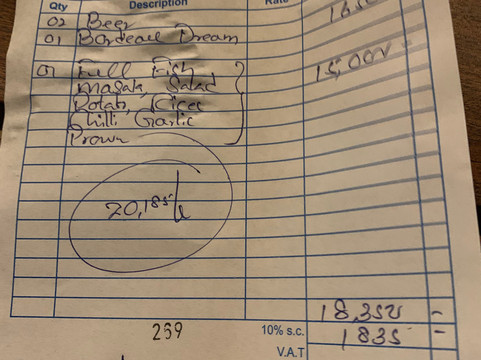 Qty Description Rate
02 Beer
01 Bordeaue Dream
01 Full Fish 15,00V
Masala, Salad
Potato, Rices
Chilli Garlic
Prown
20,185/
18,35V -
259 10% s.c. 1835 -
V.A.T